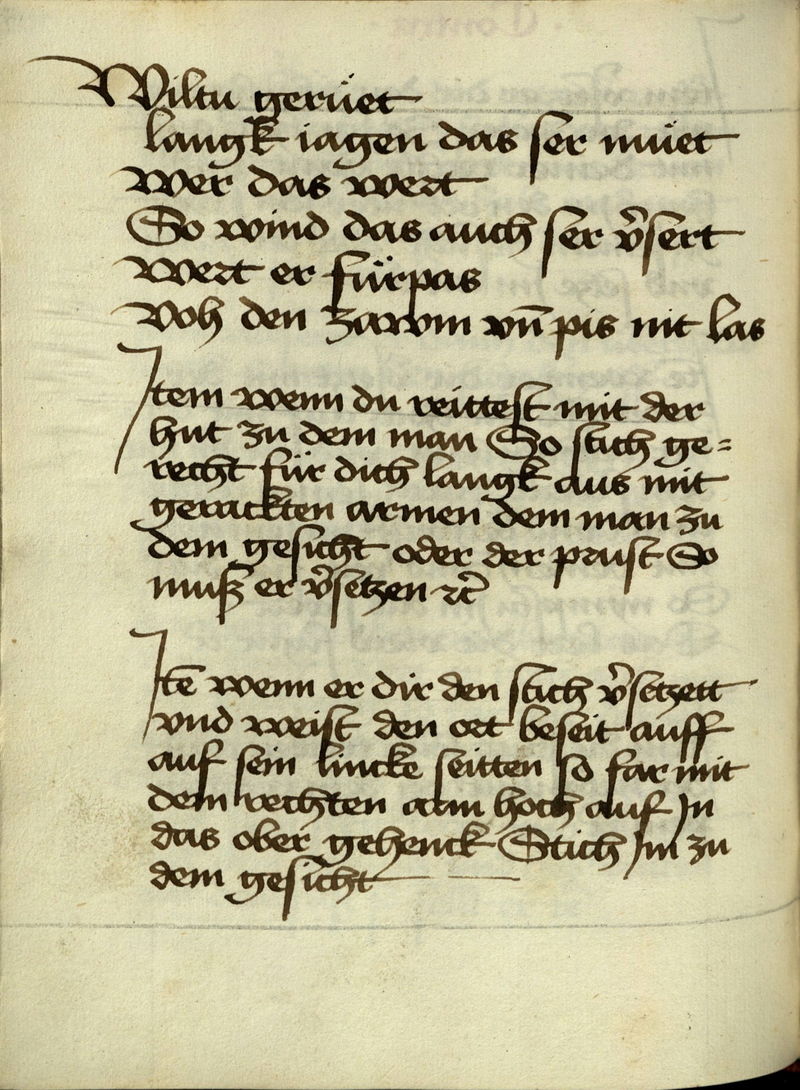 Wiltu gerüet
langk iagen das ser müet
wer das wert
So wind das auch ser v̄sert
Wert er fürpas
Voh den zawm vn̄ pis nit las
Item wenn du reittest mit der
hut zu dem man So stich ge=
recht für dich langk aus mit
gerackten armen dem man zu
dem gesicht oder der prust So
muß er v̄setzen ꝛc̄
Itē wenn er dir den stich v̄setzett
vnd weist den ort beseit auff
auf sein lincke seitten so far mit
dem rechten arm hoch auf In
das ober gehenck Stich Im zu
dem gesicht